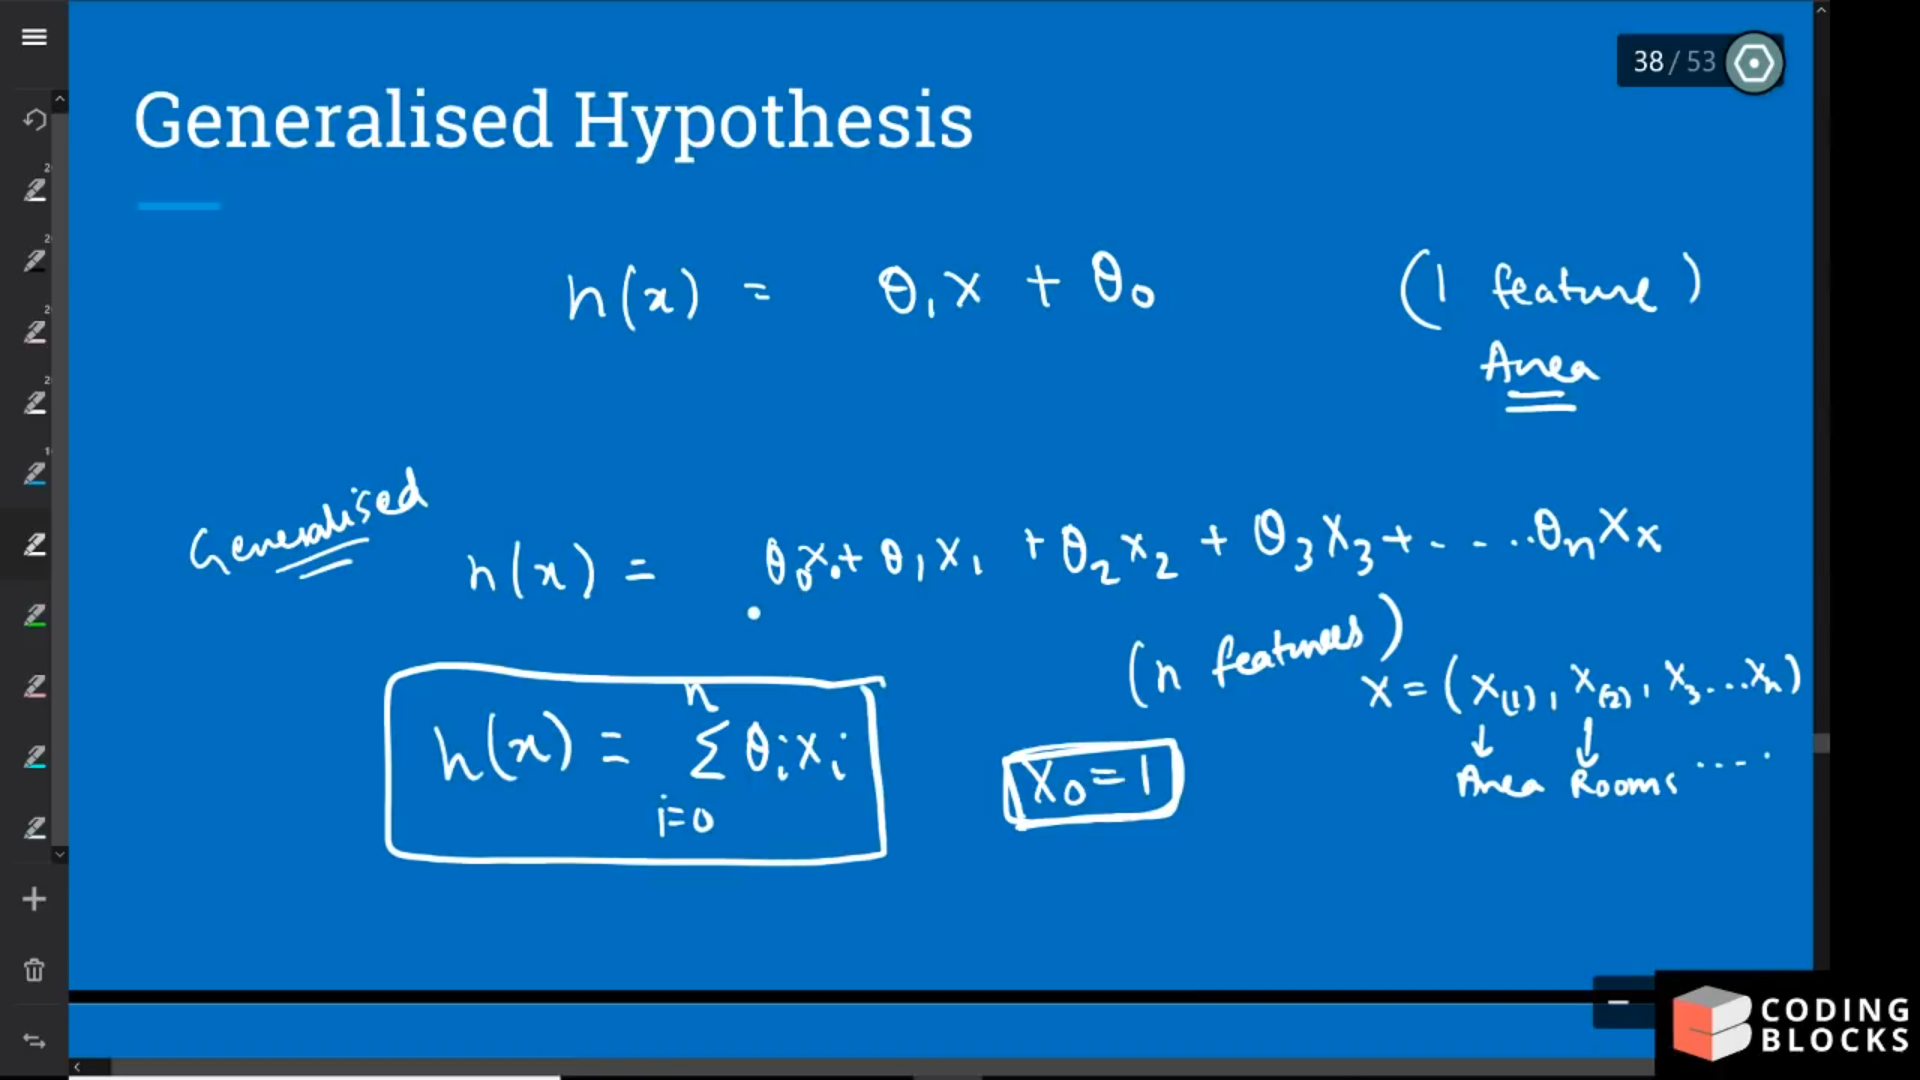 38 / 53
Generalised Hypothesis
h(x) = θ₁x + θ₀ (1 feature)
Area
Generalised
h(x) = θ₀x₀ + θ₁x₁ + θ₂x₂ + θ₃x₃ + - - ... θₙxₓ
(n features)
x = (x₍₁₎, x₍₂₎, x₃...xₙ)
↓ ↓
Area Rooms ....
n
h(x) = Σ θᵢxᵢ
i=0
x₀ = 1
CODING
BLOCKS